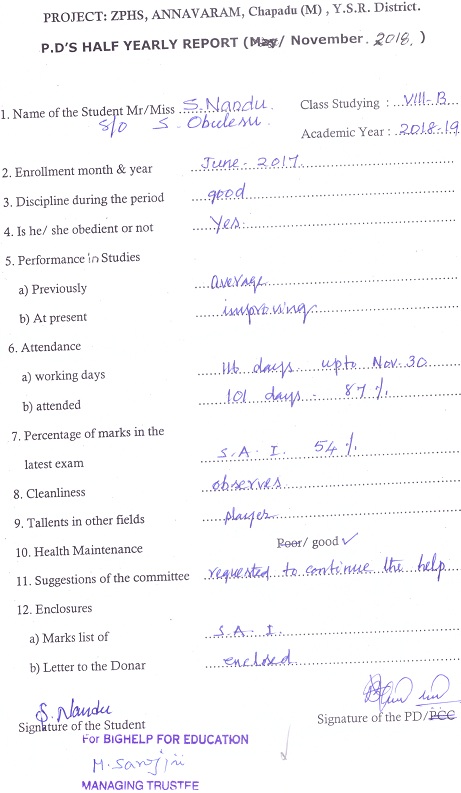 PROJECT: ZPHS, ANNAVARAM, Chapadu (M) , Y.S.R. District.
P.D'S HALF YEARLY REPORT (May/ November. 2018. )
1. Name of the Student Mr/Miss S. Nandu. Class Studying : VIII-B
S/o S. Obulesu. Academic Year : 2018-19
2. Enrollment month & year June - 2017
3. Discipline during the period good
4. Is he/ she obedient or not Yes.
5. Performance in Studies
a) Previously average
b) At present improving
6. Attendance
a) working days 116 days upto Nov. 30
b) attended 101 days - 87 %.
7. Percentage of marks in the
latest exam S. A. I. 54 %.
8. Cleanliness observes
9. Tallents in other fields player
10. Health Maintenance Poor/ good ✓
11. Suggestions of the committee requested to continue the help
12. Enclosures
a) Marks list of S. A. I.
b) Letter to the Donar enclosed
S. Nandu
Signature of the Student Signature of the PD/PCC
For BIGHELP FOR EDUCATION
M. Sarojini
MANAGING TRUSTEE